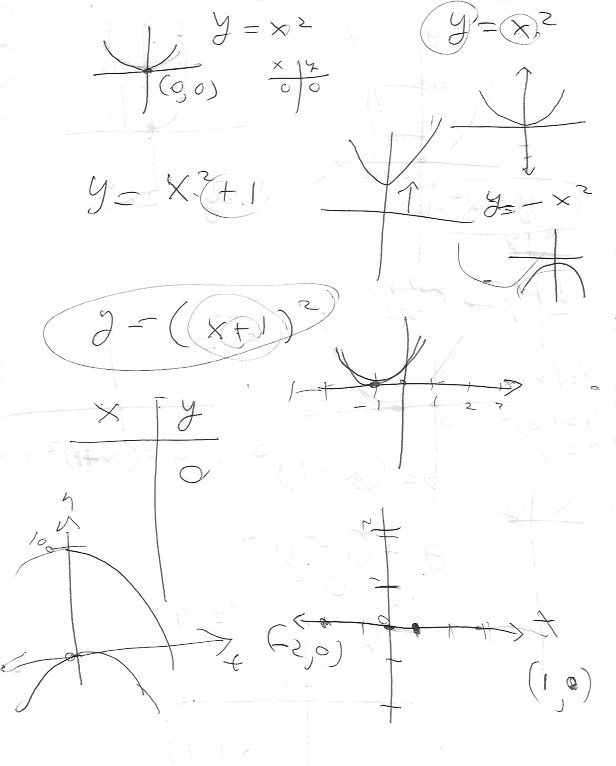 y = x²
y = x²
(0,0)
x y
0 0
y = x² + 1
y = - x²
y = (x+1)²
-1 1 2 3
x y
0
10
t
0
(-2,0)
(1,0)